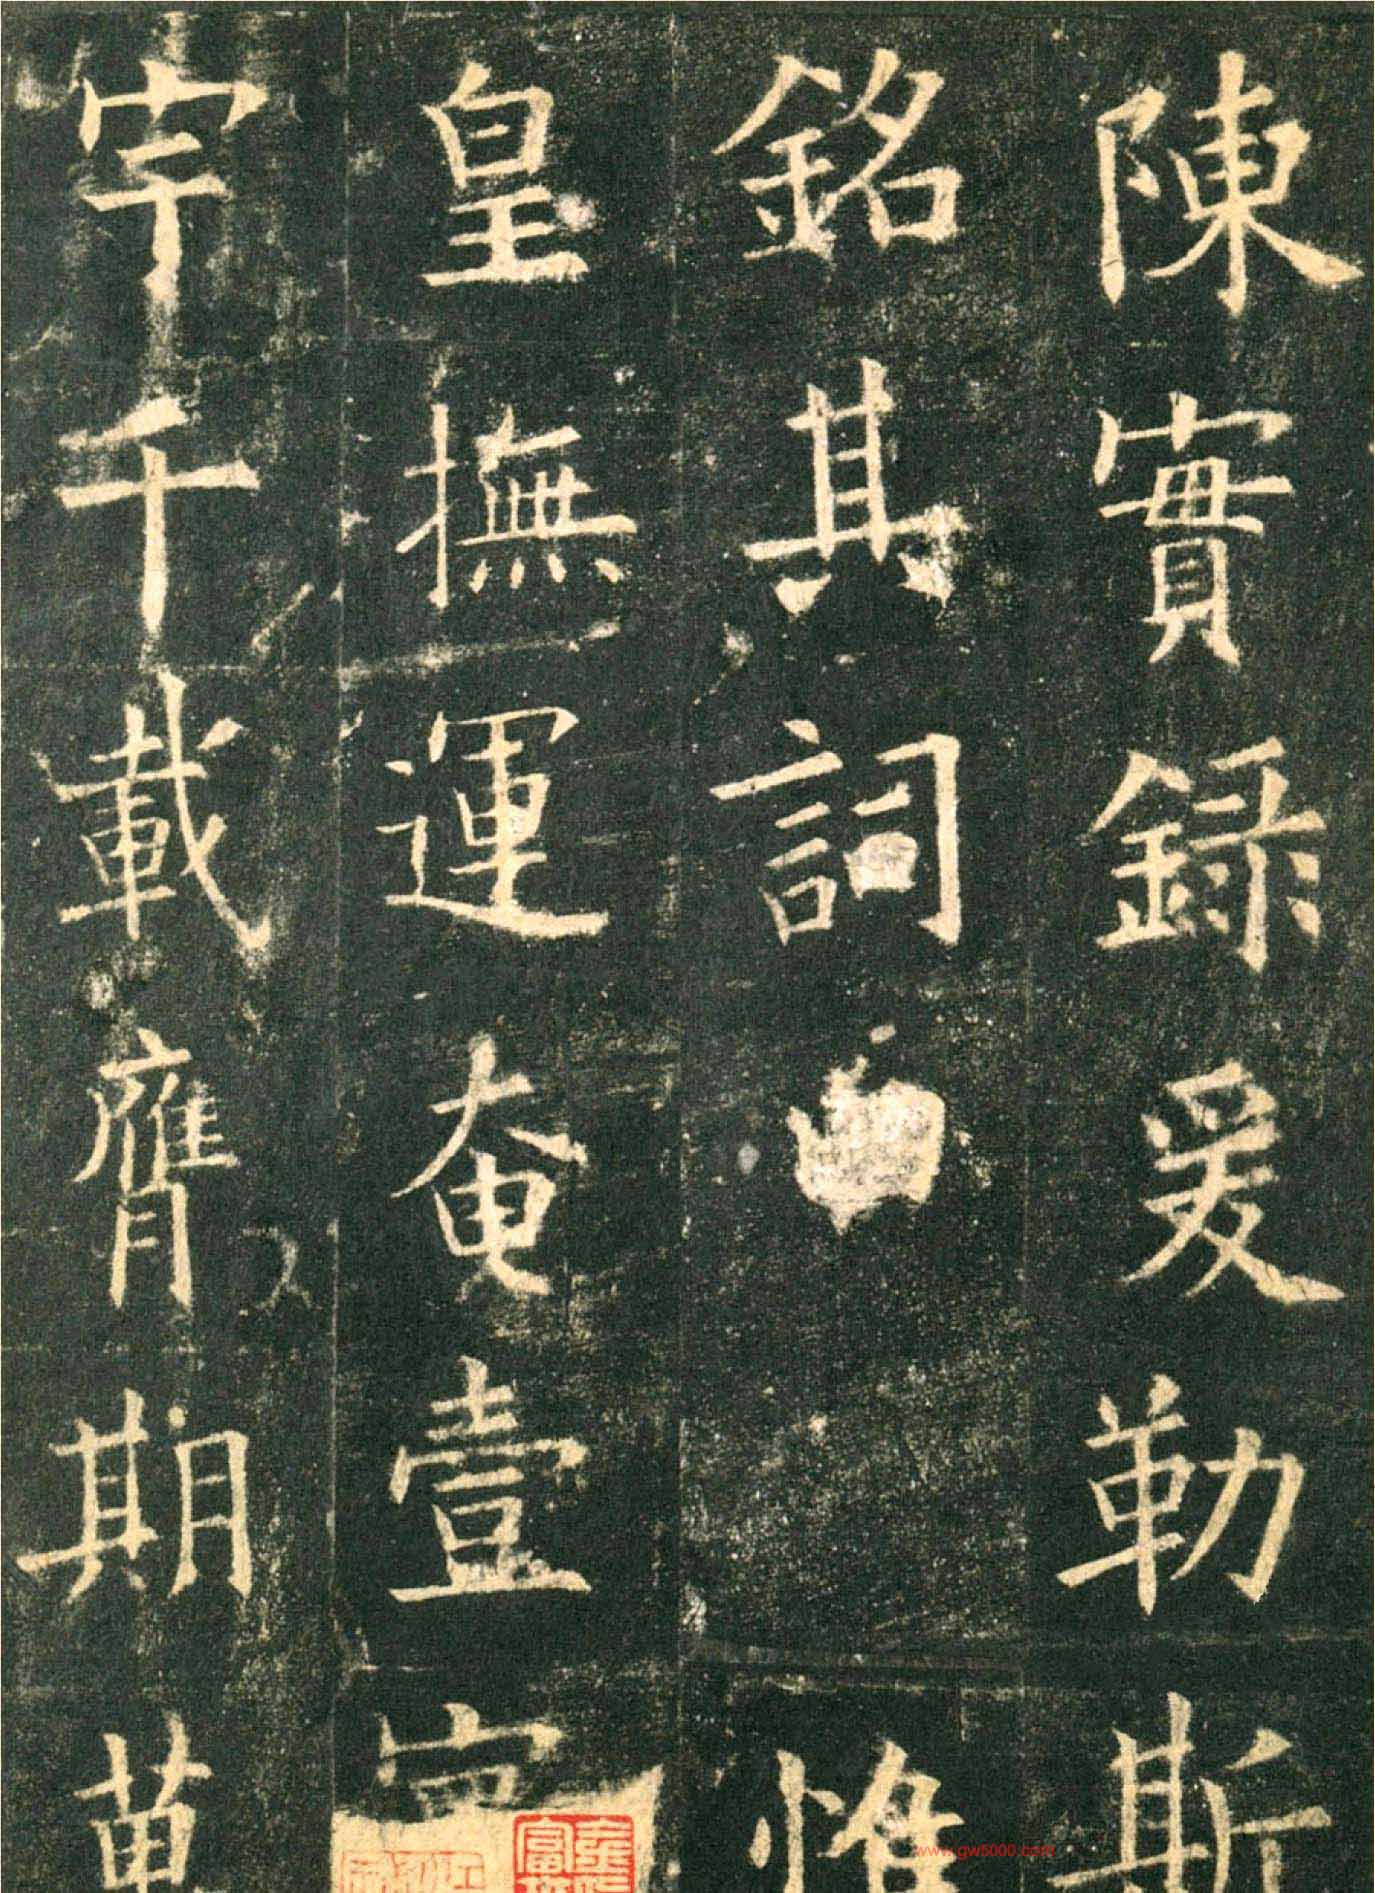 陳實錄爰勒斯
銘其詞惟
皇撫運奄壹
宇千載膺期萬
www.gw5000.com